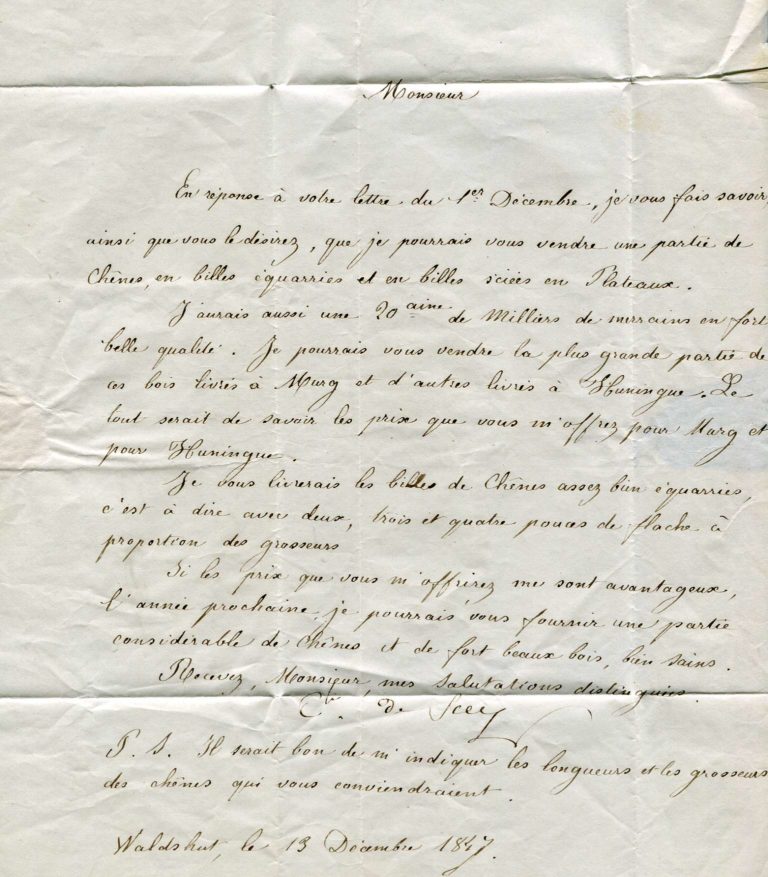 Monsieur
En réponse à votre lettre du 1er Décembre, je vous fais savoir,
ainsi que vous le désirez, que je pourrais vous vendre une partie de
Chênes, en billes équarries et en billes sciées en Plateaux.
J'aurais aussi une 20aine de Milliers de merrains en fort
belle qualité. Je pourrais vous vendre la plus grande partie de
ces bois livrés à Murg et d'autres livrés à Huningue. Le
tout serait de savoir les prix que vous m'offrez pour Murg et
pour Huningue.
Je vous livrerais les billes de Chênes assez bien équarries,
c'est à dire avec deux, trois et quatre pouces de flache à
proportion des grosseurs
Si les prix que vous m'offrirez me sont avantageux,
l'année prochaine je pourrais vous fournir une partie
considérable de Chênes et de fort beaux bois, bien sains.
Recevez, Monsieur, mes salutations distinguées.
de Scey
P. S. Il serait bon de m'indiquer les longueurs et les grosseurs
des chênes qui vous conviendraient.
Waldshut, le 13 Décembre 1847.